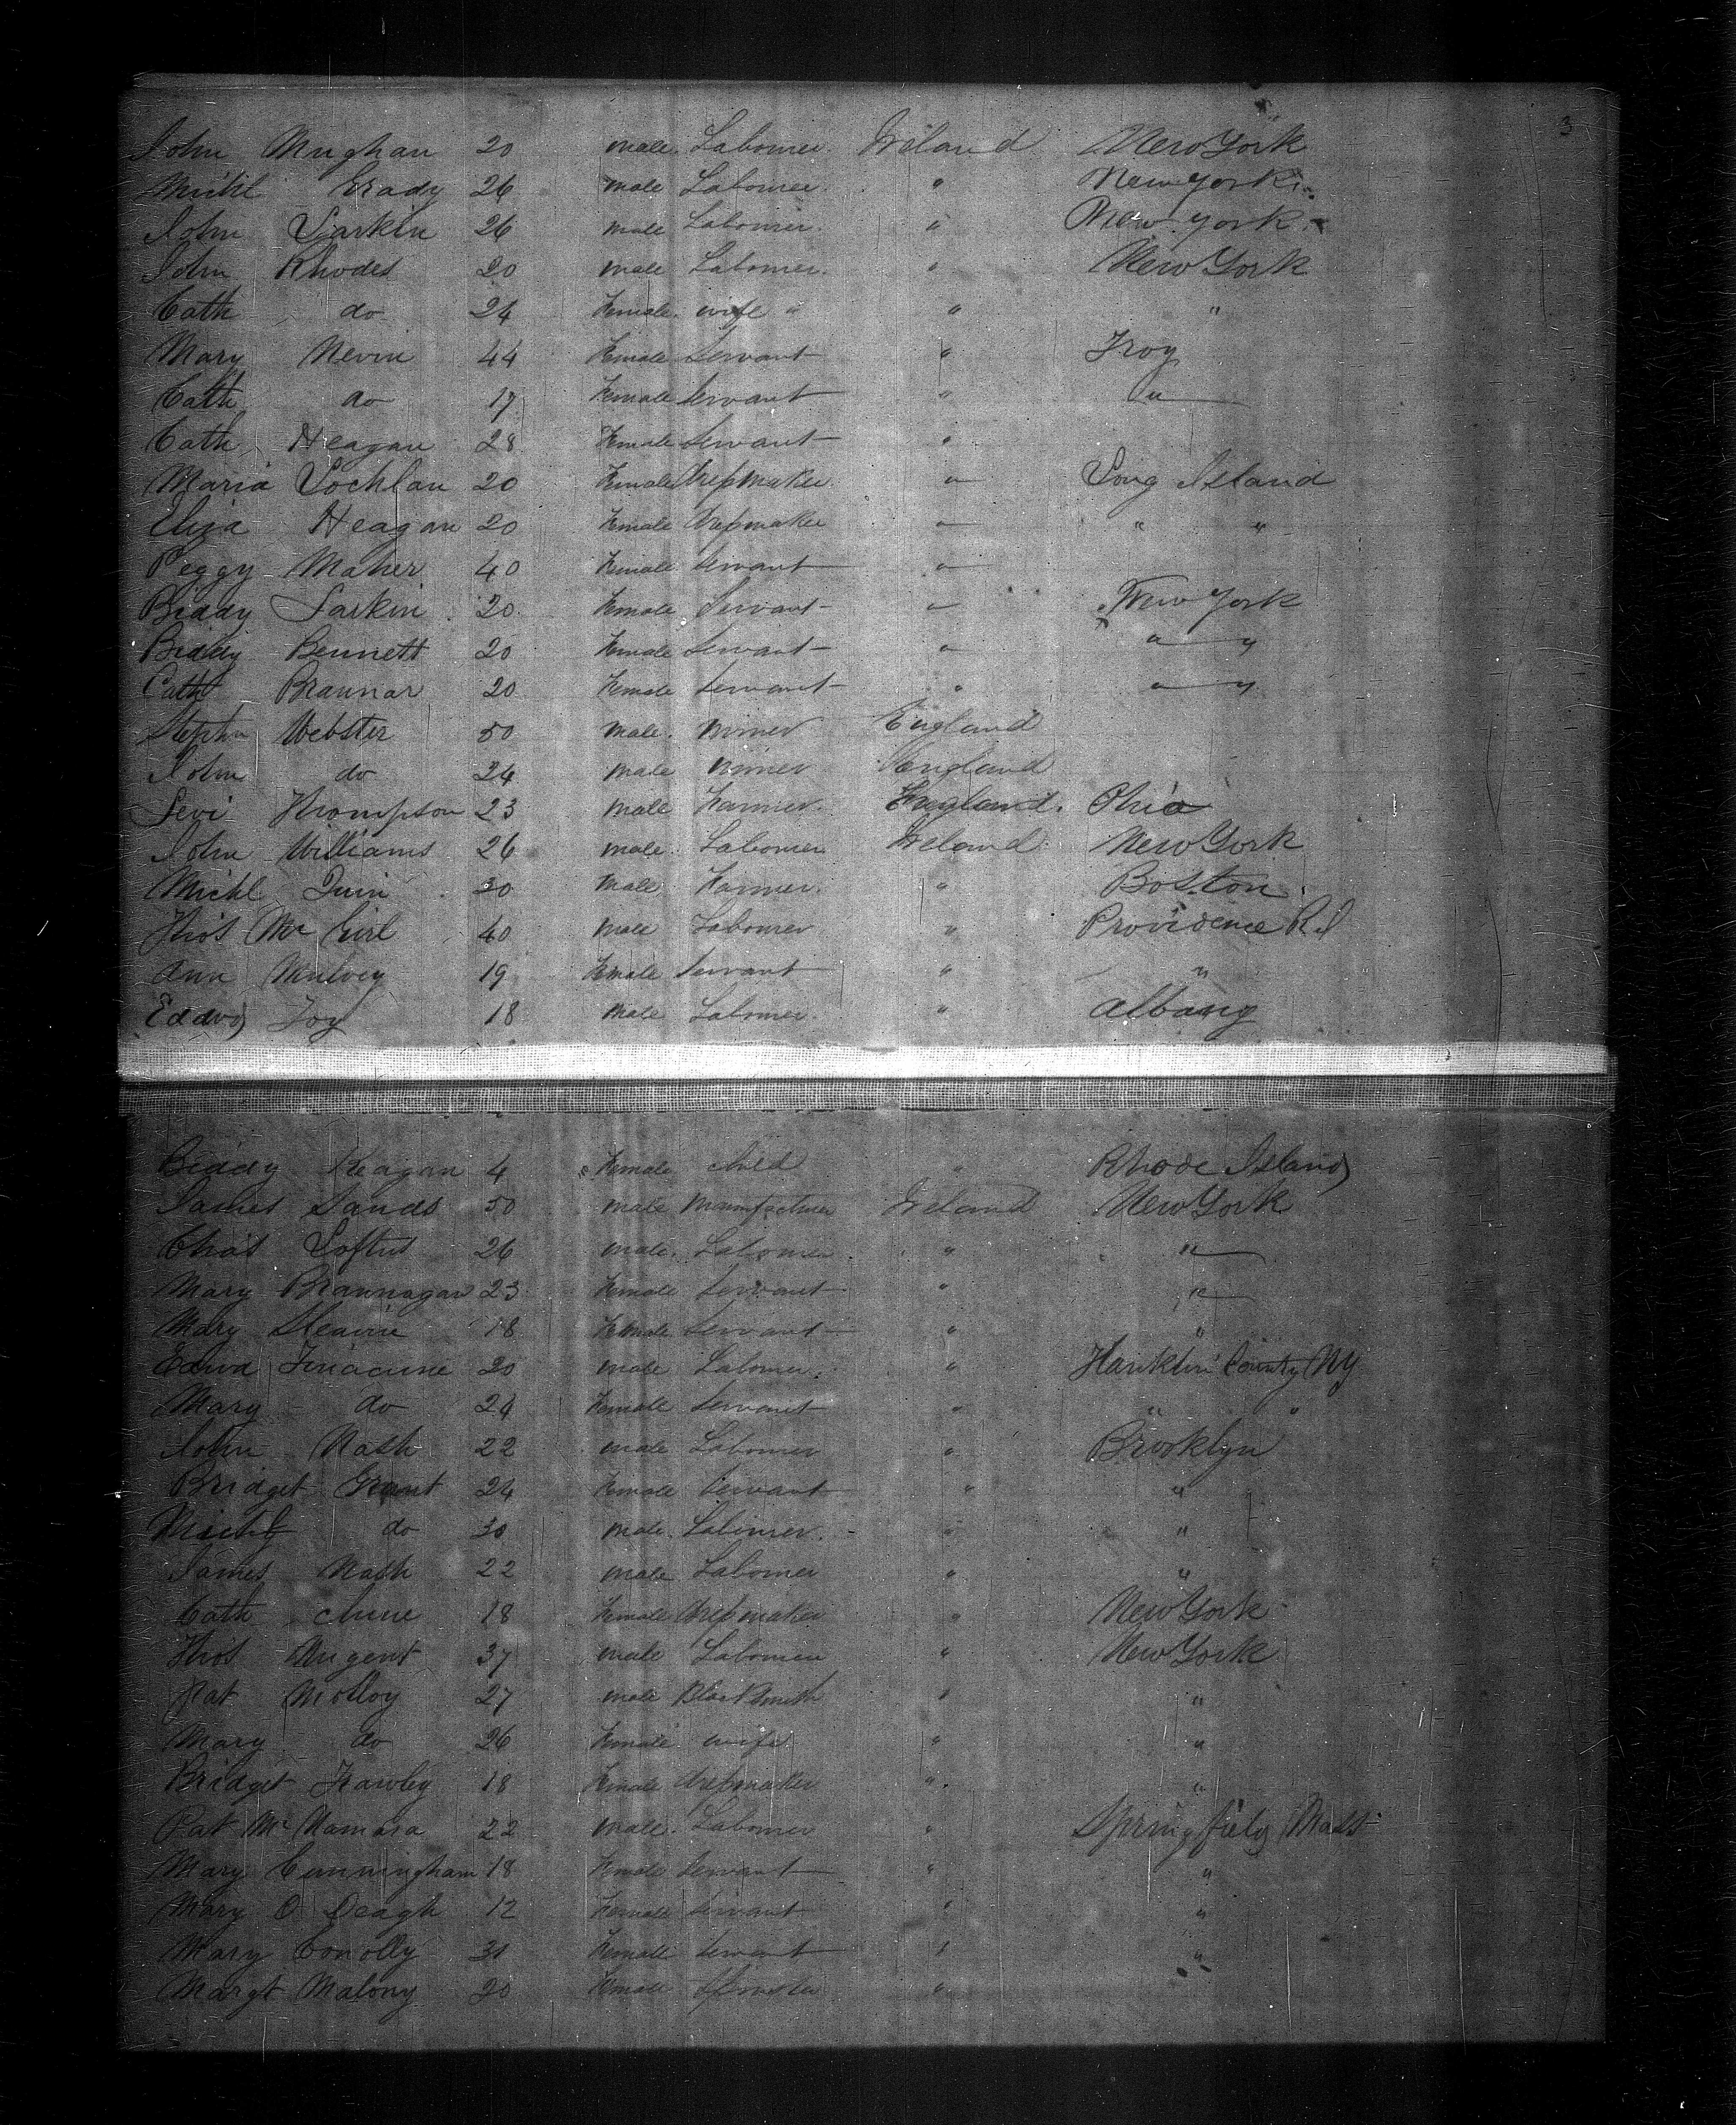 3
John Mughan 20 male Labourer Ireland New York
Michl Grady 26 male Labourer " New York
John Larkin 26 male Labourer " New York
John Rhodes 20 male Labourer " New York
Cath do 24 Female wife " " "
Mary Nevin 44 Female Servant " Troy
Cath do 17 Female Servant " "
Cath Heagan 28 Female Servant "
Maria Lochlan 20 Female dressmaker " Long Island
Eliza Heagan 20 Female dressmaker " " "
Peggy Maher 40 Female Servant "
Biddy Larkin 20 Female Servant " New York
Biddy Bennett 20 Female Servant " " "
Cath Brannar 20 Female Servant " " "
Stephn Webster 50 male miner England
John do 24 male miner England
Levi Thompson 23 male Farmer England Ohio
John Williams 26 male Labourer Ireland New York
Michl Quin 30 male Farmer " Boston
Thos Mc Girl 40 male Labourer " Providence R.I
Ann Mulvey 19 Female Servant " "
Edwd Foy 18 male Labourer " Albany
Biddy Keagan 4 Female child " Rhode Island
James Sands 50 male Manufacturer Ireland New York
Chas Loftus 26 male Labourer " "
Mary Brannagan 23 Female Servant " "
Mary 18 Female Servant " "
Edwd 20 male Labourer " County NY
Mary do 24 Female Servant " " "
John Nash 22 male Labourer " Brooklyn
Bridget Grant 24 Female Servant " "
Michl do 30 male Labourer " "
James Nash 22 male Labourer " "
Cath Clune 18 Female dressmaker " New York
Thos Nugent 37 male Labourer " New York
Pat Molloy 27 male Blacksmith " "
Mary do 26 Female wife " "
Bridget Frawley 18 Female dressmaker " "
Pat Mc Namara 22 male Labourer " Springfield Mass
Mary Cunningham 18 Female Servant " "
Mary O Deagh 12 Female Servant " "
Mary Conolly 31 Female Servant " "
Margt Malony 20 Female Spinster "